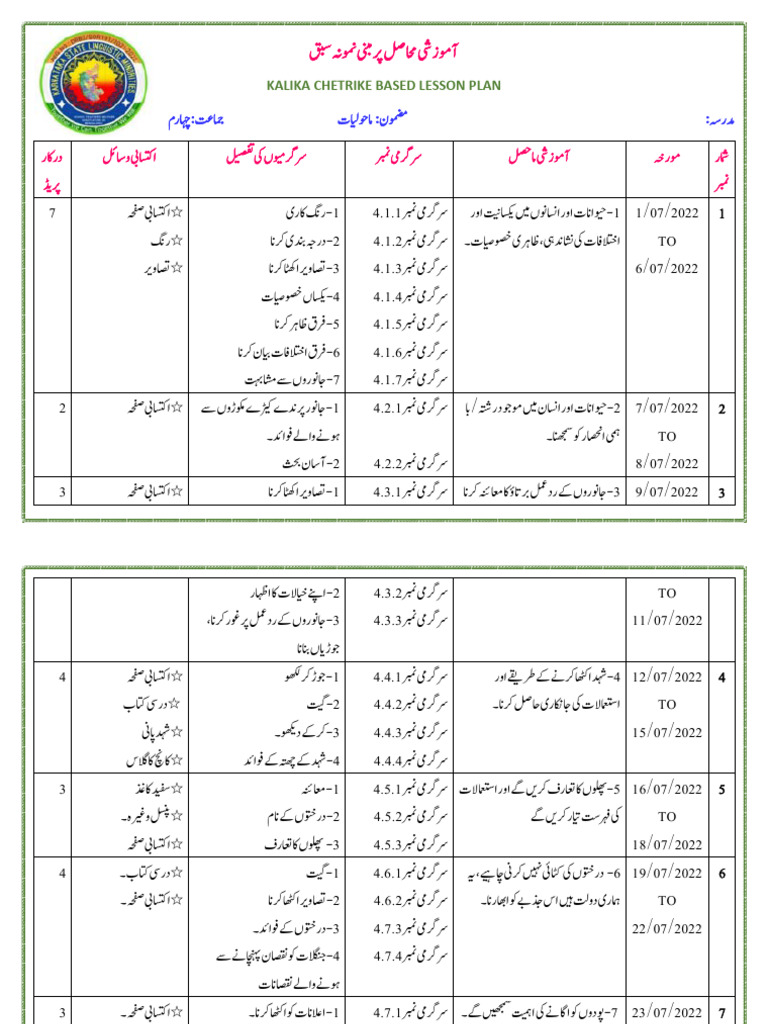 آموزشی محاصل پر مبنی نمونہ سبق
KALIKA CHETRIKE BASED LESSON PLAN
مدرسہ: مضمون: ماحولیات جماعت: چہارم
شمار نمبر مورخہ آموزشی ماحصل سرگرمی نمبر سرگرمیوں کی تفصیل اکتسابی وسائل درکار پریڈ
1 1/07/2022 1-حیوانات اور انسانوں میں یکسانیت اور سرگرمی نمبر 4.1.1 1-رنگ کاری ☆اکتسابی صفحہ 7
TO اختلافات کی نشاندہی، ظاہری خصوصیات۔ سرگرمی نمبر 4.1.2 2-درجہ بندی کرنا ☆رنگ
6/07/2022 سرگرمی نمبر 4.1.3 3-تصاویر اکھٹا کرنا ☆تصاویر
سرگرمی نمبر 4.1.4 4-یکساں خصوصیات
سرگرمی نمبر 4.1.5 5-فرق ظاہر کرنا
سرگرمی نمبر 4.1.6 6-فرق اختلافات بیان کرنا
سرگرمی نمبر 4.1.7 7-جانوروں سے مشابہت
2 7/07/2022 2-حیوانات اور انسان میں موجود رشتہ/با سرگرمی نمبر 4.2.1 1-جانور پرندے کیڑے مکوڑوں سے ☆اکتسابی صفحہ 2
TO ہمی انحصار کو سمجھنا۔ ہونے والے فوائد۔
8/07/2022 سرگرمی نمبر 4.2.2 2-آسان بحث
3 9/07/2022 3-جانوروں کے ردعمل برتاؤ کا معائنہ کرنا سرگرمی نمبر 4.3.1 1-تصاویر اکھٹا کرنا ☆اکتسابی صفحہ 3
TO سرگرمی نمبر 4.3.2 2-اپنے خیالات کا اظہار
11/07/2022 سرگرمی نمبر 4.3.3 3-جانوروں کے ردعمل پر غور کرنا،
جوڑیاں بنانا
4 12/07/2022 4-شہد اکٹھا کرنے کے طریقے اور سرگرمی نمبر 4.4.1 1-جوڑ کر لکھو ☆اکتسابی صفحہ 4
TO استعمالات کی جانکاری حاصل کرنا۔ سرگرمی نمبر 4.4.2 2-گیت ☆درسی کتاب
15/07/2022 سرگرمی نمبر 4.4.3 3-کرکے دیکھو۔ ☆شہد پانی
سرگرمی نمبر 4.4.4 4-شہد کے چھتہ کے فوائد ☆کانچ کا گلاس
5 16/07/2022 5-پھلوں کا تعارف کریں گے اور استعمالات سرگرمی نمبر 4.5.1 1-معائنہ ☆سفید کاغذ 3
TO کی فہرست تیار کریں گے سرگرمی نمبر 4.5.2 2-درختوں کے نام ☆پنسل وغیرہ۔
18/07/2022 سرگرمی نمبر 4.5.3 3-پھلوں کا تعارف ☆اکتسابی صفحہ
6 19/07/2022 6-درختوں کی کٹائی نہیں کرنی چاہیے، یہ سرگرمی نمبر 4.6.1 1-گیت ☆درسی کتاب۔ 4
TO ہماری دولت ہیں اس جذبے کو ابھارنا۔ سرگرمی نمبر 4.6.2 2-تصاویر اکٹھا کرنا ☆اکتسابی صفحہ۔
22/07/2022 سرگرمی نمبر 4.7.3 3-درختوں کے فوائد۔
سرگرمی نمبر 4.7.4 4-جنگلات کو نقصان پہنچانے سے
ہونے والے نقصانات
7 23/07/2022 7-پودوں کو اگانے کی اہمیت سمجھیں گے۔ سرگرمی نمبر 4.7.1 1-اعلانات کو اکھٹا کرنا۔ ☆اکتسابی صفحہ۔ 3